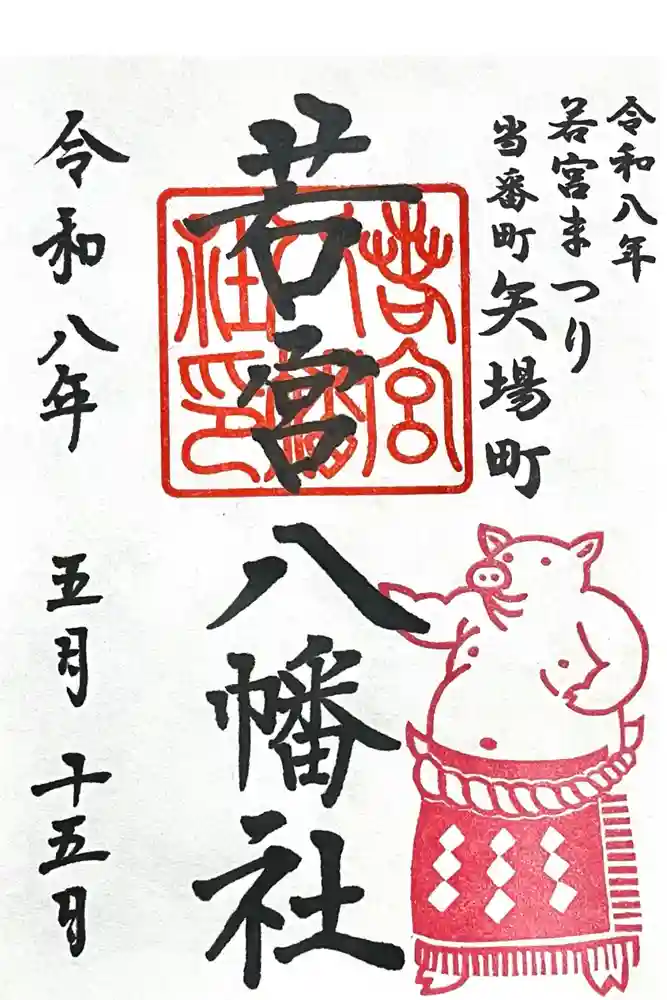 令和八年
若宮まつり
当番町 矢場町
若宮八幡社
若宮
八幡
社印
令和八年 五月 十五日